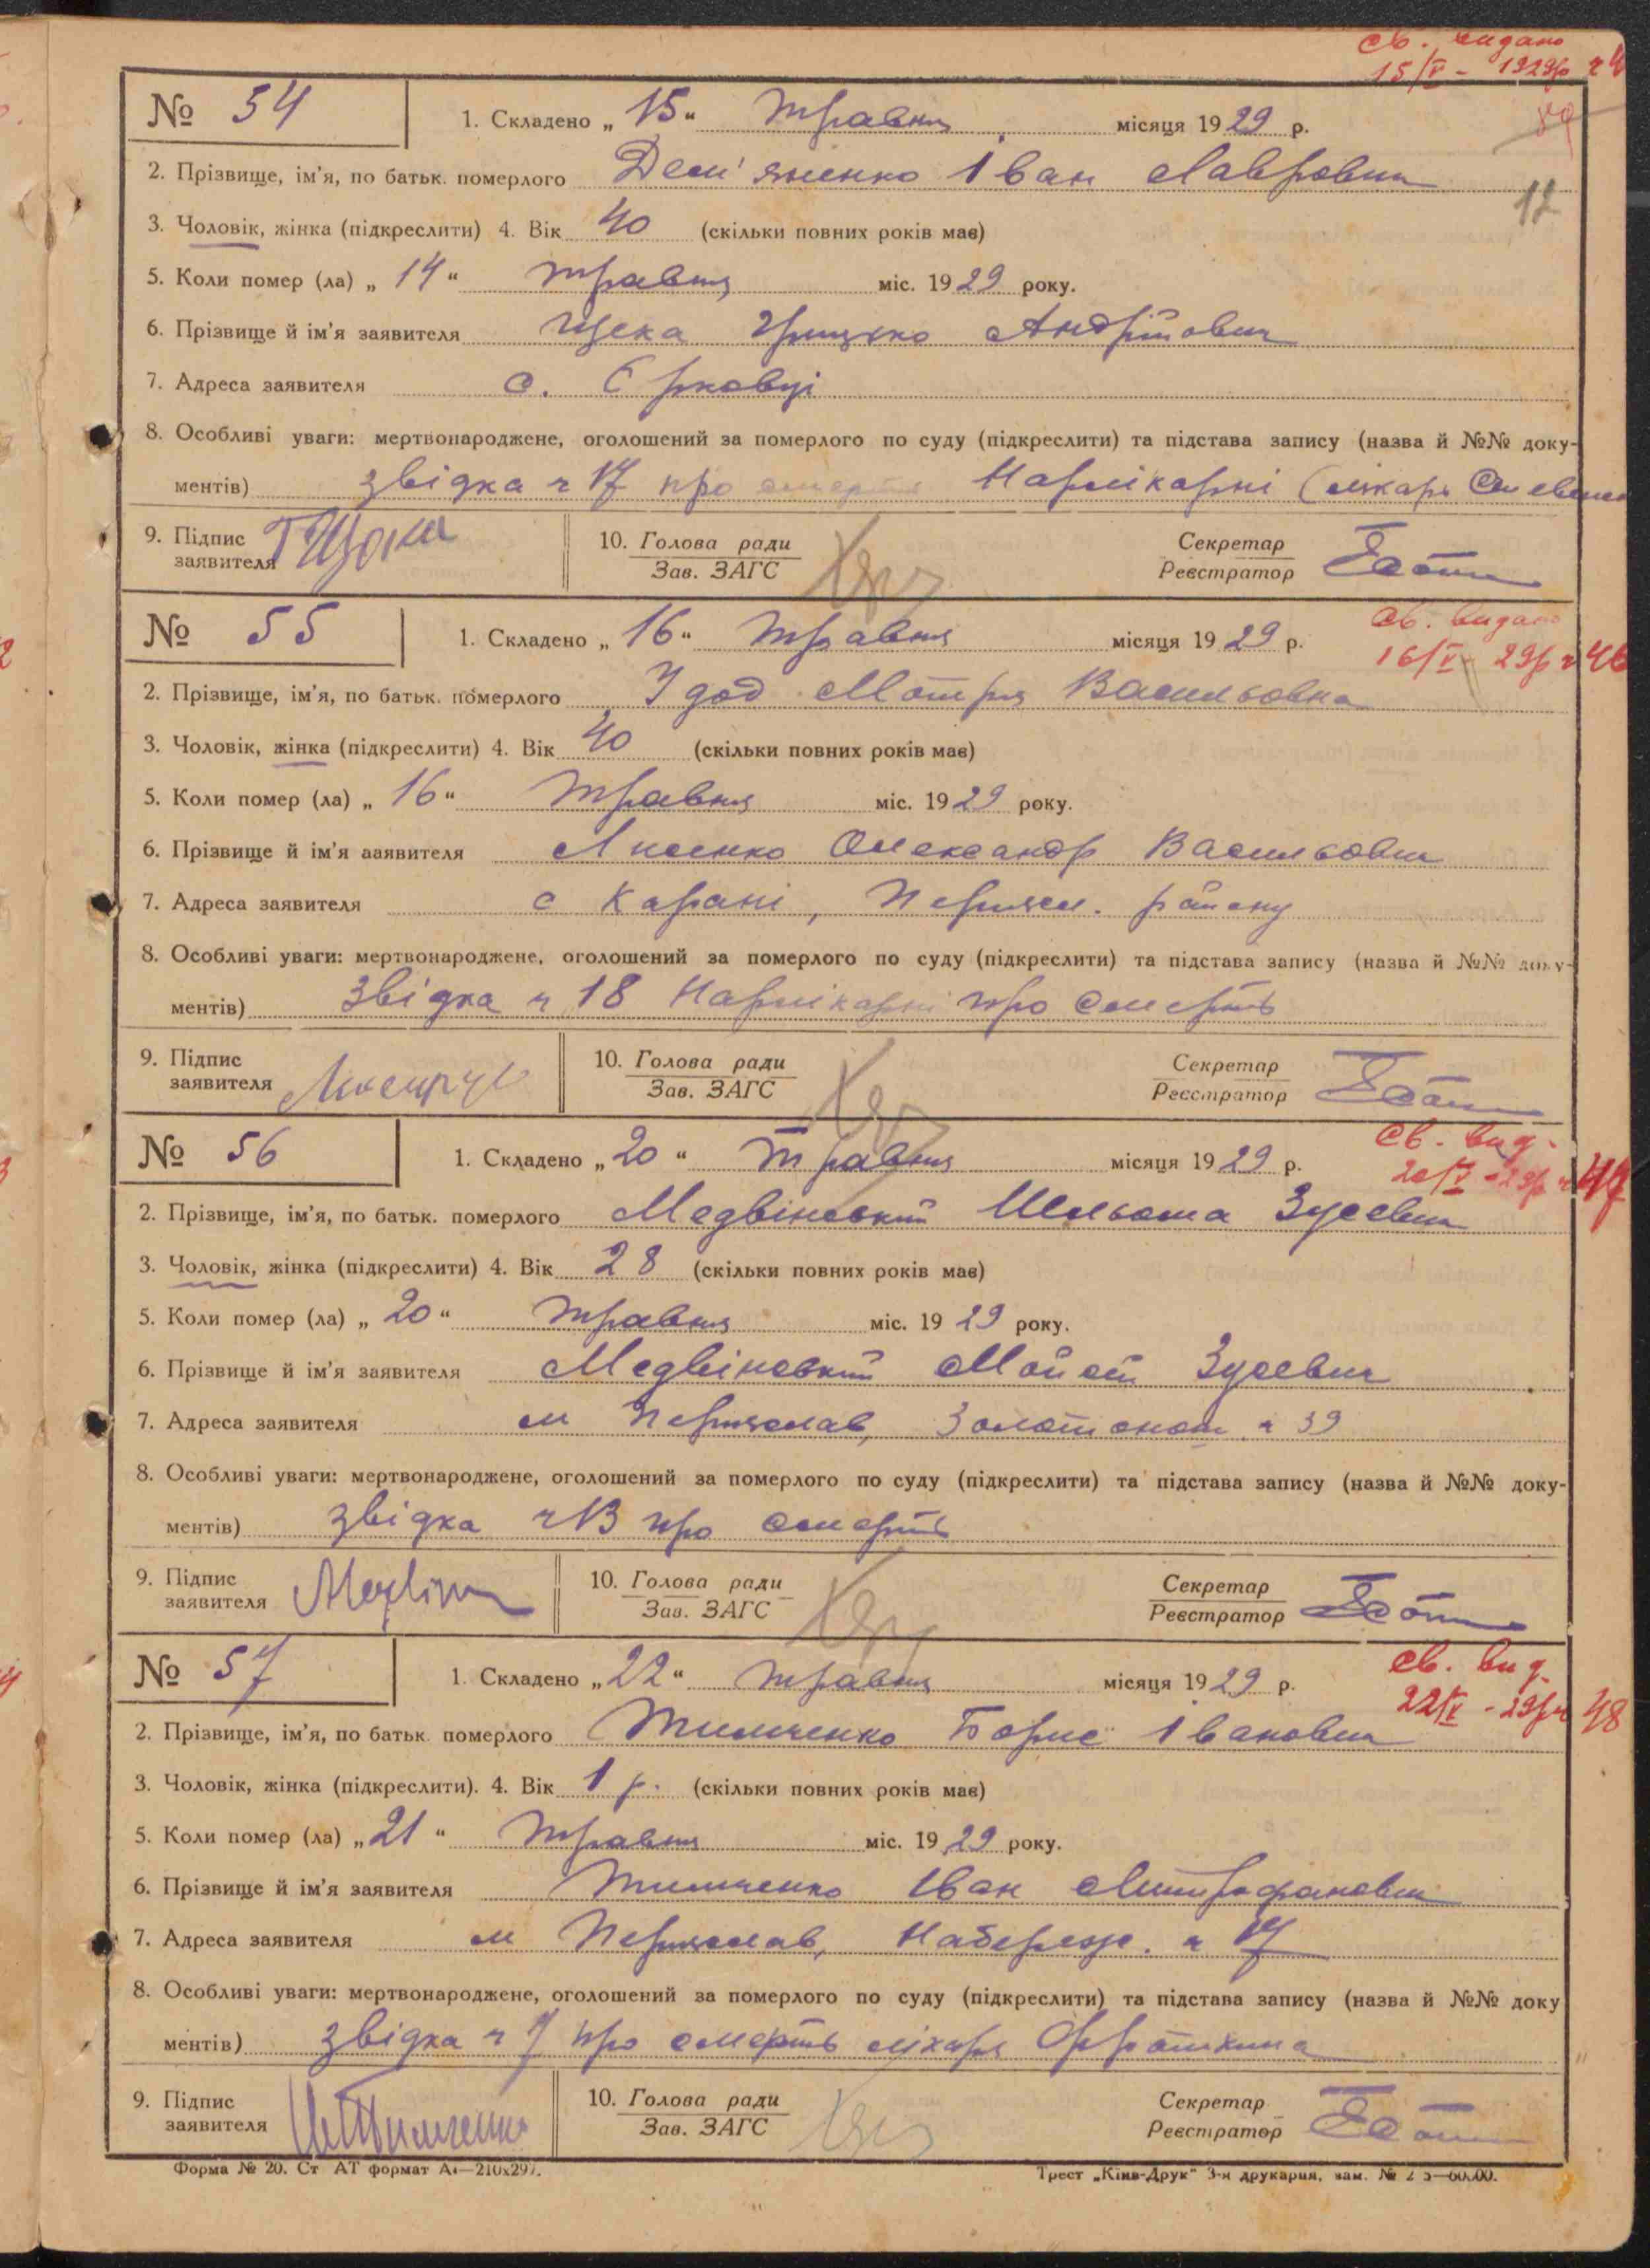 св. видано
15/V - 1929р ч 4
89
12
№ 54 1. Складено „ 15 “ травня місяця 1929 р.
2. Прізвище, ім’я, по батьк. померлого Дем'яненко Іван Лаврович
3. Чоловік, жінка (підкреслити) 4. Вік 40 (скільки повних років має)
5. Коли помер (ла) „ 14 “ травня міс. 1929 року.
6. Прізвище й ім’я заявителя Грицько Андрійович
7. Адреса заявителя с. Єрковці
8. Особливі уваги: мертвонароджене, оголошений за померлого по суду (підкреслити) та підстава запису (назва й №№ доку-
ментів) звідка ч 17 про смерть Нарлікарні (лікарь
9. Підпис 10. Голова ради Секретар
заявителя Зав. ЗАГС Реєстратор
№ 55 1. Складено „ 16 “ травня місяця 1929 р. св. видано
16/V - 29р ч 46
2. Прізвище, ім’я, по батьк. померлого Удод Мотря Васильовна
3. Чоловік, жінка (підкреслити) 4. Вік 40 (скільки повних років має)
5. Коли помер (ла) „ 16 “ травня міс. 1929 року.
6. Прізвище й ім’я заявителя Лисенко Олександр Васильович
7. Адреса заявителя с Карані, Переясл. району
8. Особливі уваги: мертвонароджене, оголошений за померлого по суду (підкреслити) та підстава запису (назва й №№ доку-
ментів) Звідка ч 18 Нарлікарні про смерть
9. Підпис 10. Голова ради Секретар
заявителя Зав. ЗАГС Реєстратор
№ 56 1. Складено „ 20 “ травня місяця 1929 р. св. вид.
20/V - 29р ч 47
2. Прізвище, ім’я, по батьк. померлого Медвіновский Шльома Зусевич
3. Чоловік, жінка (підкреслити) 4. Вік 28 (скільки повних років має)
5. Коли помер (ла) „ 20 “ травня міс. 1929 року.
6. Прізвище й ім’я заявителя Медвіновский Мойсей Зусевич
7. Адреса заявителя м Переяслав, Золотонош. ч 39
8. Особливі уваги: мертвонароджене, оголошений за померлого по суду (підкреслити) та підстава запису (назва й №№ доку-
ментів) звідка ч 13 про смерть
9. Підпис 10. Голова ради Секретар
заявителя Зав. ЗАГС Реєстратор
№ 57 1. Складено „ 22 “ травня місяця 1929 р. св. вид.
22/V - 29р ч 48
2. Прізвище, ім’я, по батьк. померлого Тимченко Борис Іванович
3. Чоловік, жінка (підкреслити). 4. Вік 1 р. (скільки повних років має)
5. Коли помер (ла) „ 21 “ травня міс. 1929 року.
6. Прізвище й ім’я заявителя Тимченко Іван Митрофанович
7. Адреса заявителя м Переяслав, Набереж. ч 17
8. Особливі уваги: мертвонароджене, оголошений за померлого по суду (підкреслити) та підстава запису (назва й №№ доку
ментів) звідка ч 7 про смерть лікаря
9. Підпис 10. Голова ради Секретар
заявителя Тимченко Зав. ЗАГС Реєстратор
Форма № 20. Ст АТ формат А4—210х297. Трест „Київ-Друк“ 3-я друкарня, зам. №